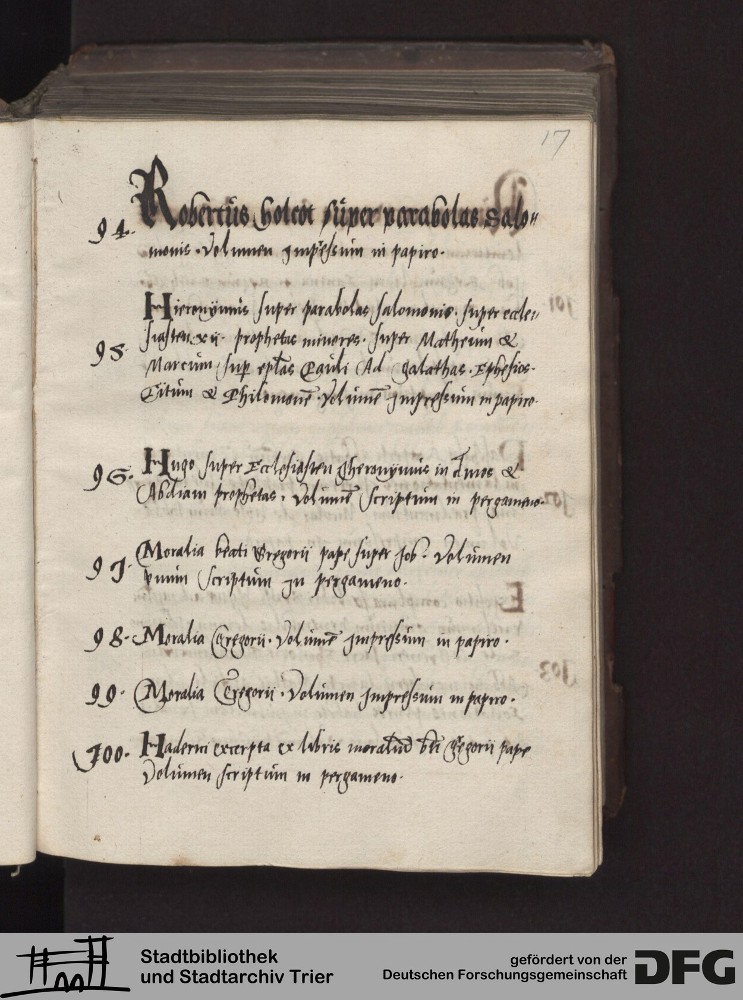 17
94. Robertus holcot super parabolas Salo„
monis. Volumen impressum in papiro.
Hieronymus super parabolas salomonis. super eccle„
siasten. xii. prophetas minores. super Matheum &
95.
Marcum sup eplas Pauli Ad galathas. Ephesios.
Titum & Philimonē. Volumē impressum in papiro.
96. Hugo super Ecclesiasten Iheronymus in Amos &
Abdiam prophetas. Volumē scriptum in pergameno.
97. Moralia beati Gregorii pape super Job. Volumen
vnum scriptum in pergameno.
98. Moralia Gregorii. Volumē impressum in papiro.
99. Moralia Gregorii. Volumen impressum in papiro.
100. Haderni excerpta ex libris moraliū bti Gregorii pape
Volumen scriptum in pergameno.
Stadtbibliothek
und Stadtarchiv Trier
gefördert von der
Deutschen Forschungsgemeinschaft
DFG